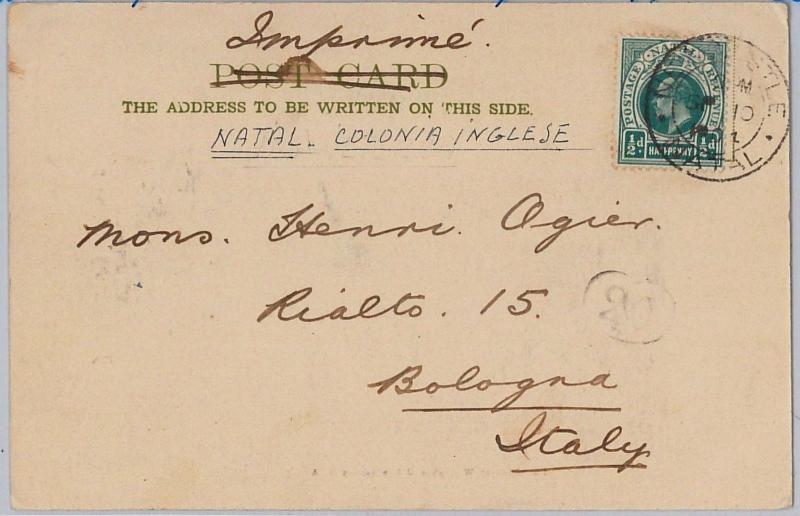 Imprimé.
POST CARD
THE ADDRESS TO BE WRITTEN ON THIS SIDE.
NATAL. COLONIA INGLESE
POSTAGE NATAL REVENUE
½d ½d
HALFPENNY
NATAL
Mons. Henri. Ogier.
Rialto. 15.
Bologna
Italy